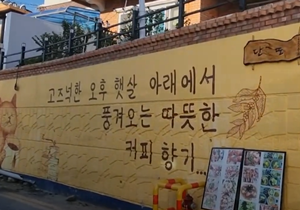 고즈넉한 오후 햇살 아래에서
풍겨오는 따뜻한
커피 향기...